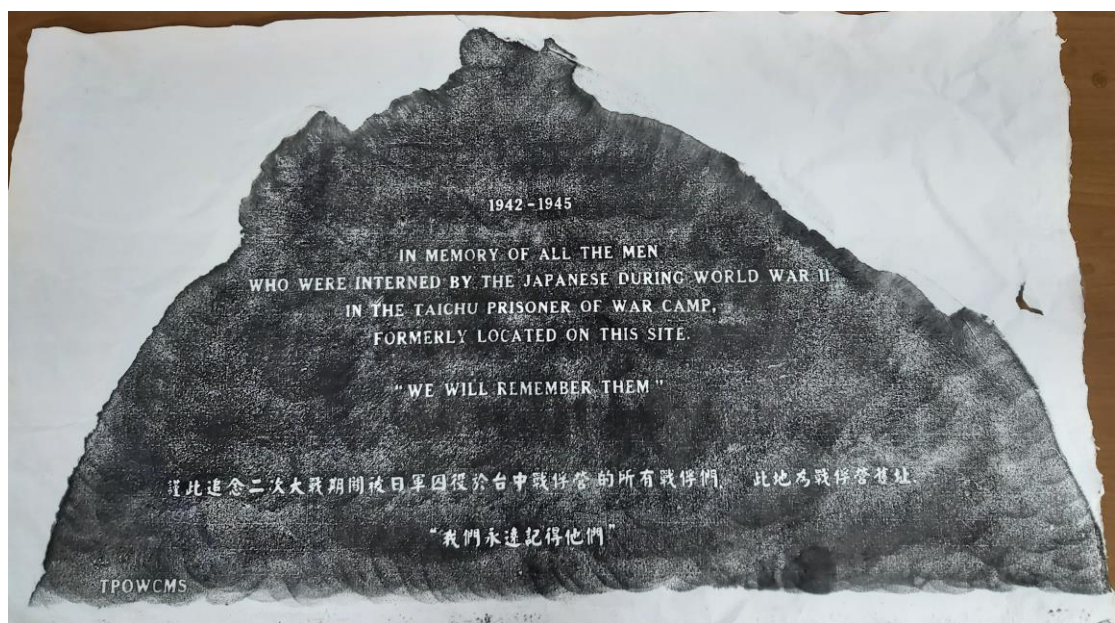 1942-1945
IN MEMORY OF ALL THE MEN
WHO WERE INTERNED BY THE JAPANESE DURING WORLD WAR II
IN THE TAICHU PRISONER OF WAR CAMP,
FORMERLY LOCATED ON THIS SITE.
"WE WILL REMEMBER THEM"
謹此追念二次大戰期間被日軍囚役於台中戰俘營的所有戰俘們, 此地為戰俘營舊址.
"我們永遠記得他們"
TPOWCMS